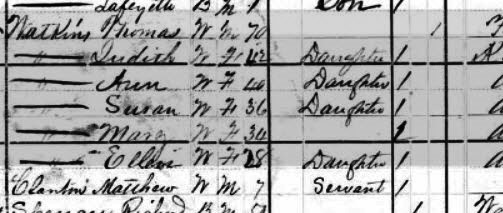 Lafayette B M 1 Son 1
Watkins Thomas W M 70 1
" Judith W F 42 Daughter 1
" Ann W F 40 Daughter 1
" Susan W F 36 Daughter 1
" Mary W F 34 1
" Ellen W F 28 Daughter 1
Clanton Matthew W M 7 Servant 1
B M 1